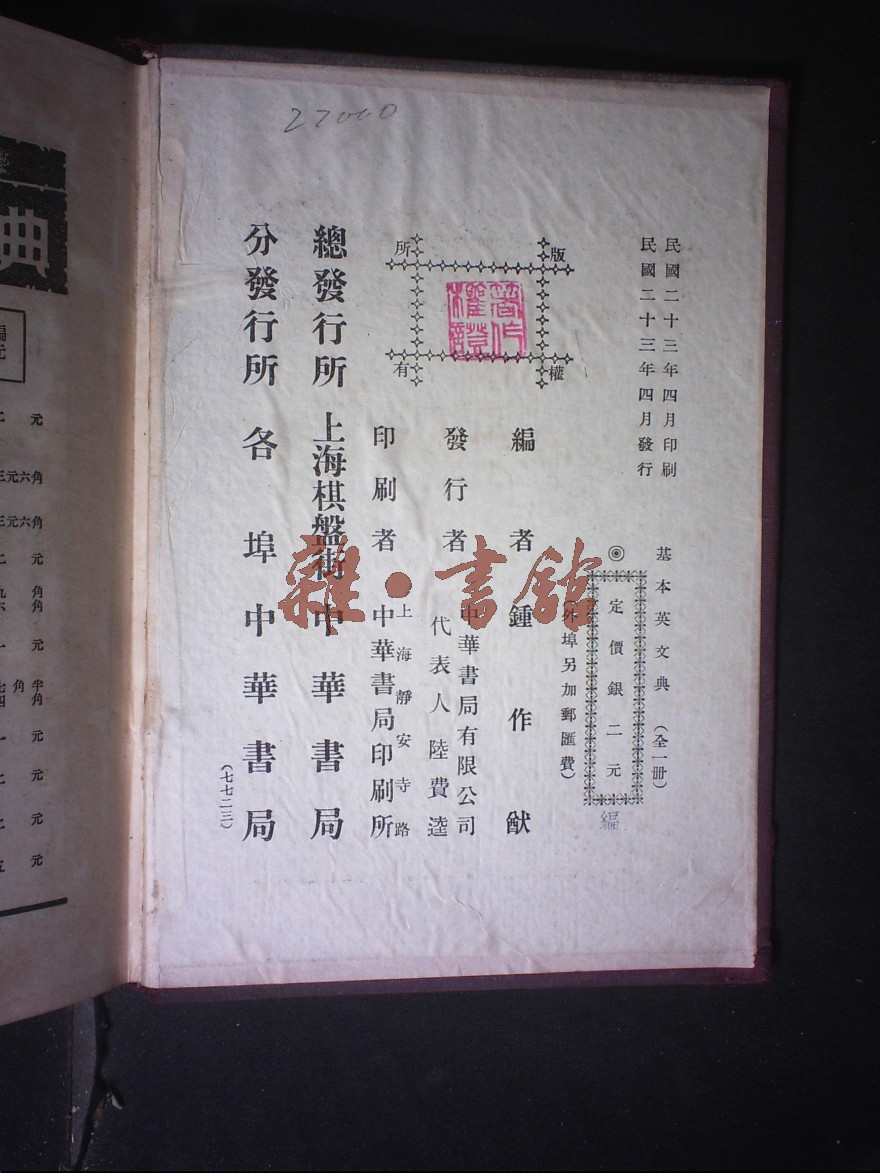 27000
民國二十三年四月印刷
民國二十三年四月發行
基本英文典（全一冊）
◎
定價銀二元
（外埠另加郵匯費）
編
版權
所有
著作
權證
編者鍾作猷
發行者
中華書局有限公司
代表人陸費逵
印刷者
上海靜安寺路
中華書局印刷所
總發行所 上海棋盤街 中華書局
分發行所 各埠中華書局
（七七二三）
典
編
元
元
三元六角
三元六角
二元
九角
六角
一元
七角半
四角
一元
元
元
五元
雜·書館